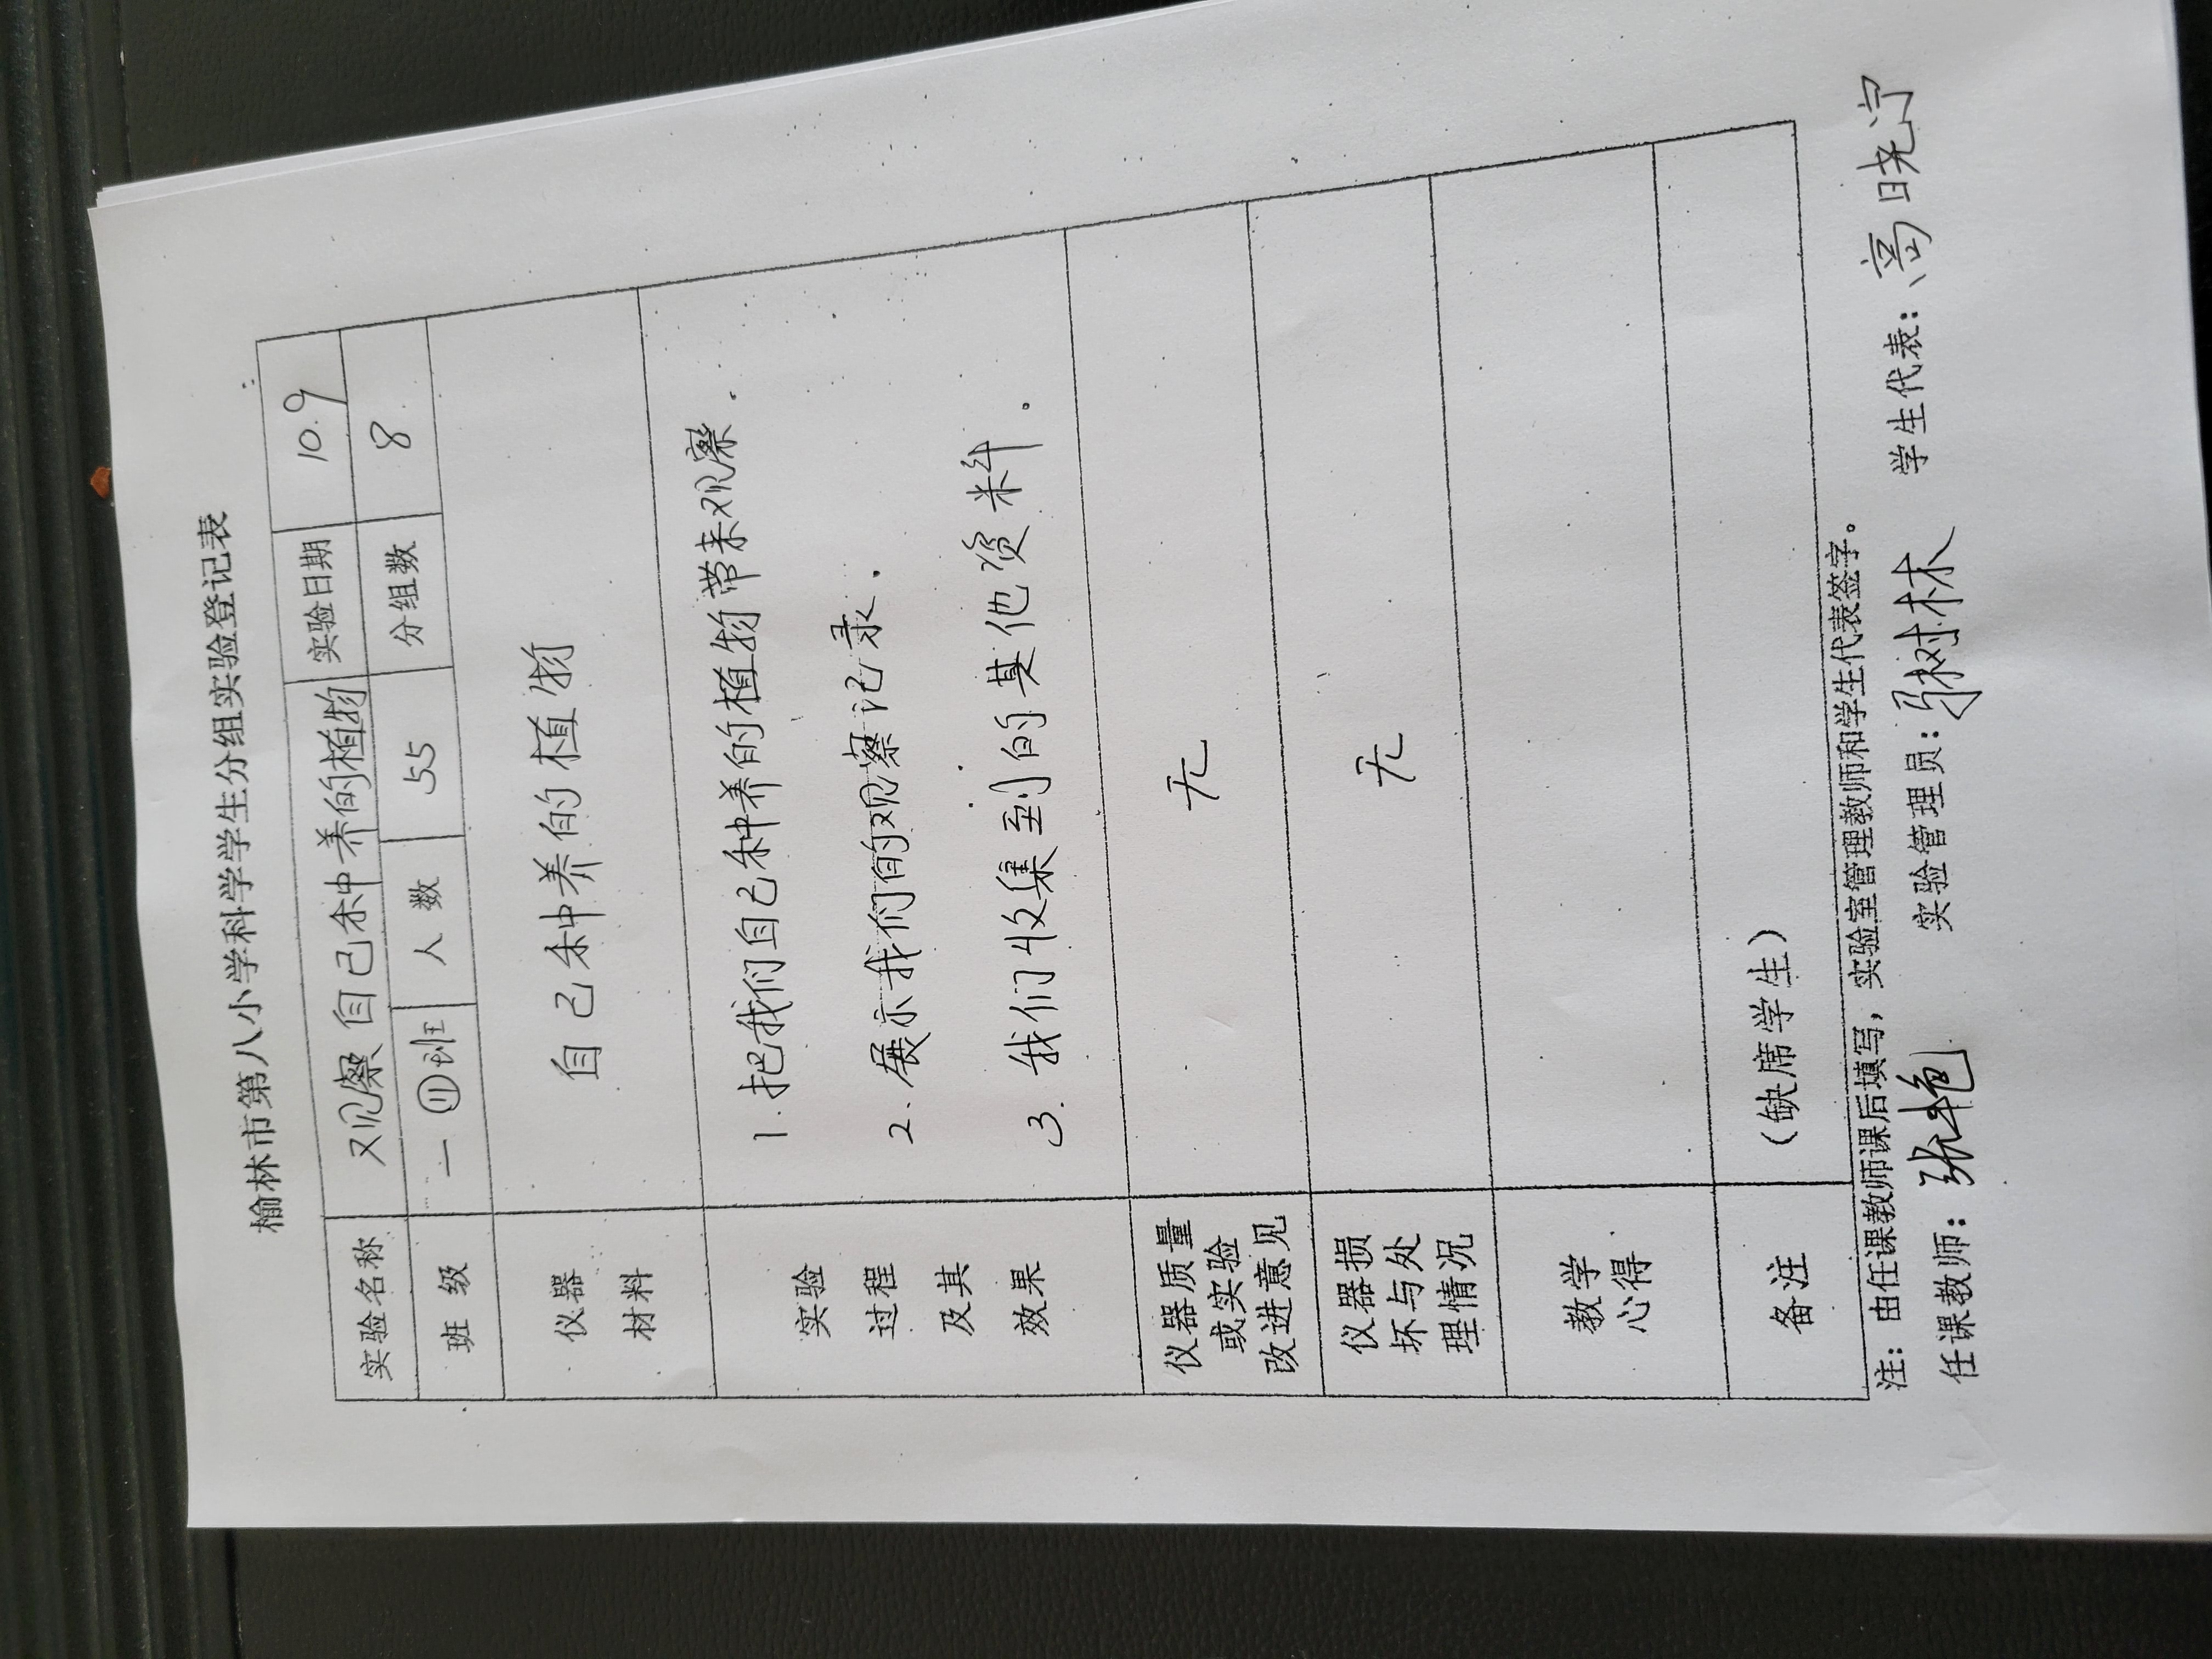 榆林市第八小学科学学生分组实验登记表
实验名称 观察自己种养的植物 实验日期 10.9
班 级 一⑪班 人 数 55 分组数 8
仪器
材料
自己种养的植物
实验
过程
及其
效果
1.把我们自己种养的植物带来观察.
2、展示我们的观察记录.
3.我们收集到的其他资料.
仪器质量
或实验
改进意见
无
仪器损
坏与处
理情况
无
教学
心得
备注 (缺席学生)
注：由任课教师课后填写，实验室管理教师和学生代表签字。
任课教师：张艳 实验管理员：树林 学生代表：高晓宁